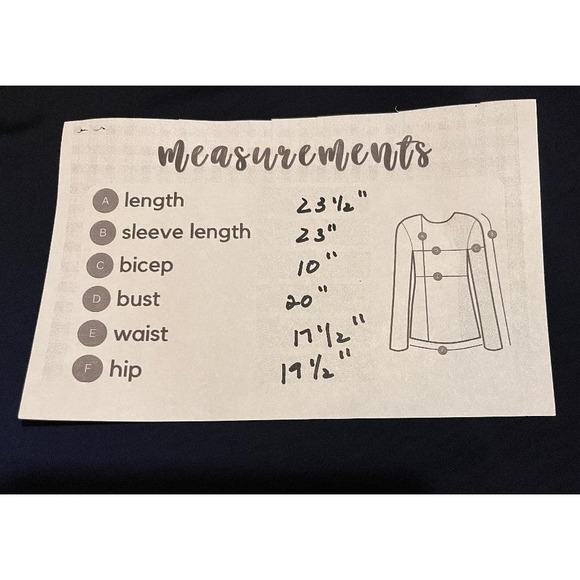 measurements
A length 23 1/2"
B sleeve length 23"
C bicep 10"
D bust 20"
E waist 17 1/2"
F hip 19 1/2"